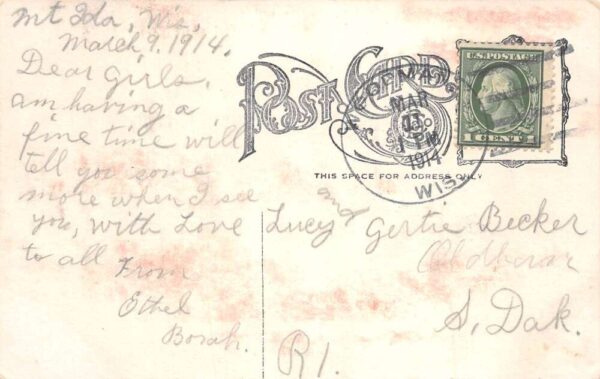 Mt Ida, Wis,
March 9. 1914.
Dear Girls,
am having a
fine time will
tell you some
more when I see
you, with Love
to all
From
Ethel
Borah.
POST CARD
U.S. POSTAGE
1 CENT 1
MAR
11
1 PM
1914
WIS.
THIS SPACE FOR ADDRESS ONLY
Lucy and Gertie Becker
S, Dak.
R1.